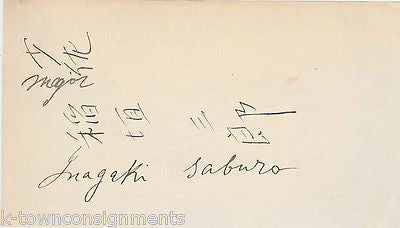 少佐
major
稲垣 三郎
Inagaki saburo
k-townconsignments